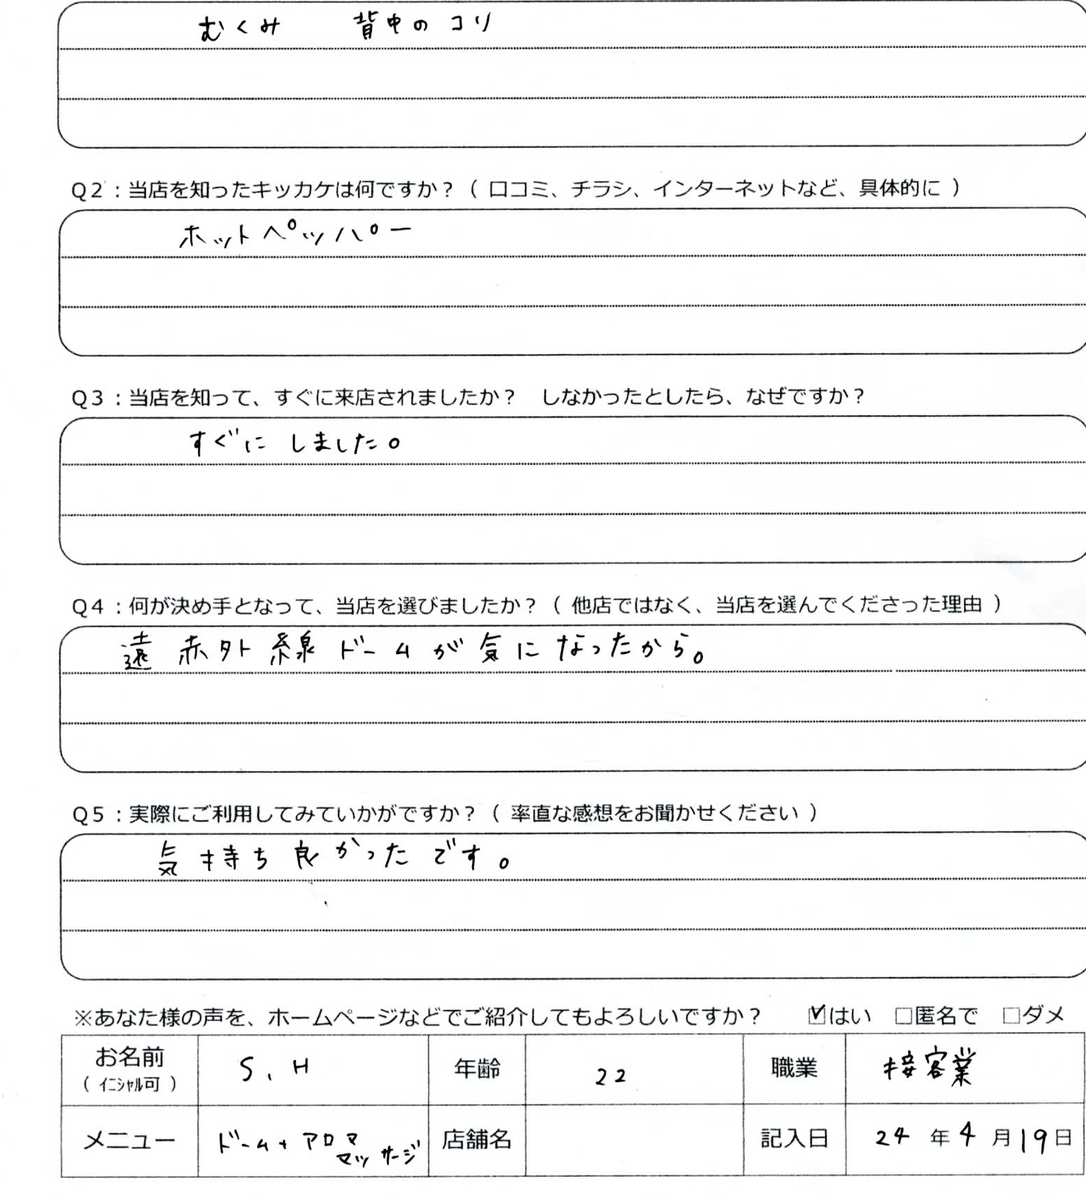 むくみ　背中のコリ
Q2：当店を知ったキッカケは何ですか？（ 口コミ、チラシ、インターネットなど、具体的に ）
ホットペッパー
Q3：当店を知って、すぐに来店されましたか？　しなかったとしたら、なぜですか？
すぐに しました。
Q4：何が決め手となって、当店を選びましたか？（ 他店ではなく、当店を選んでくださった理由 ）
遠赤外線ドームが気になったから。
Q5：実際にご利用してみていかがですか？（ 率直な感想をお聞かせください ）
気持ち良かったです。
※あなた様の声を、ホームページなどでご紹介してもよろしいですか？　☑はい　□匿名で　□ダメ
お名前（ ｲﾆｼｬﾙ可 ）　S、H　年齢　22　職業　接客業
メニュー　ドーム+アロママッサージ　店舗名　記入日　24年4月19日